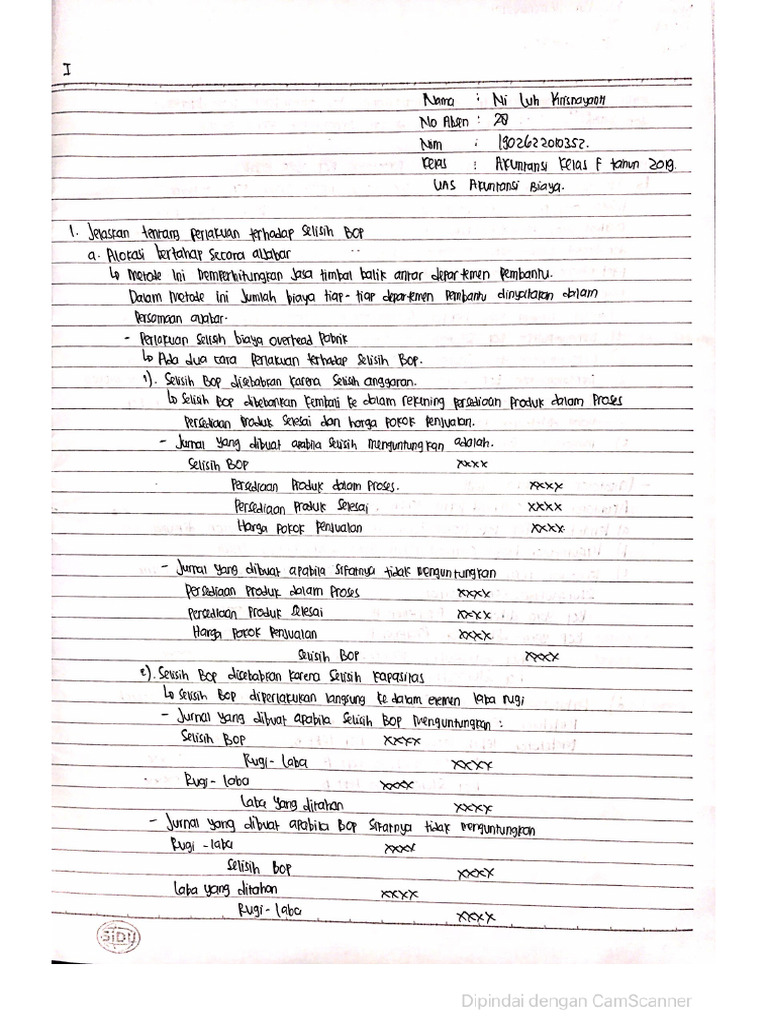 I
Nama : Ni Luh Krisnayanti
No Absen : 28
Nim : 1902622010352.
Kelas : Akuntansi Kelas F tahun 2019.
UAS Akuntansi Biaya.
1. Jelaskan tentang perlakuan terhadap Selisih BOP
a. Alokasi bertahap secara aljabar
↳ Metode ini memperhitungkan Jasa timbal balik antar departemen Pembantu.
Dalam Metode ini Jumlah biaya tiap-tiap departemen pembantu dinyatakan dalam
Persamaan aljabar.
- Perlakuan Selisih biaya overhead Pabrik
↳ Ada dua cara Perlakuan terhadap Selisih BOP.
1). Selisih BOP disebabkan karena Selisih anggaran.
↳ Selisih BOP dibebankan kembali ke dalam rekening Persediaan Produk dalam Proses
Persediaan Produk Selesai dan harga Pokok Penjualan.
- Jurnal yang dibuat apabila Selisih menguntungkan adalah.
Selisih BOP xxxx
Persediaan Produk dalam Proses. xxxx
Persediaan Produk Selesai xxxx
Harga Pokok Penjualan xxxx
- Jurnal yang dibuat apabila Sifatnya tidak menguntungkan
Persediaan Produk dalam Proses xxxx
Persediaan Produk Selesai xxxx
Harga Pokok Penjualan xxxx
Selisih BOP xxxx
2). Selisih BOP disebabkan karena Selisih Kapasitas
↳ Selisih BOP diperlakukan langsung ke dalam elemen laba rugi
- Jurnal yang dibuat apabila Selisih BOP menguntungkan :
Selisih BOP xxxx
Rugi-laba xxxx
Rugi-laba xxxx
Laba yang ditahan xxxx
- Jurnal yang dibuat apabila BOP Sifatnya tidak menguntungkan
Rugi-laba xxxx
Selisih BOP xxxx
laba yang ditahan xxxx
Rugi-laba xxxx
SIDU
Dipindai dengan CamScanner